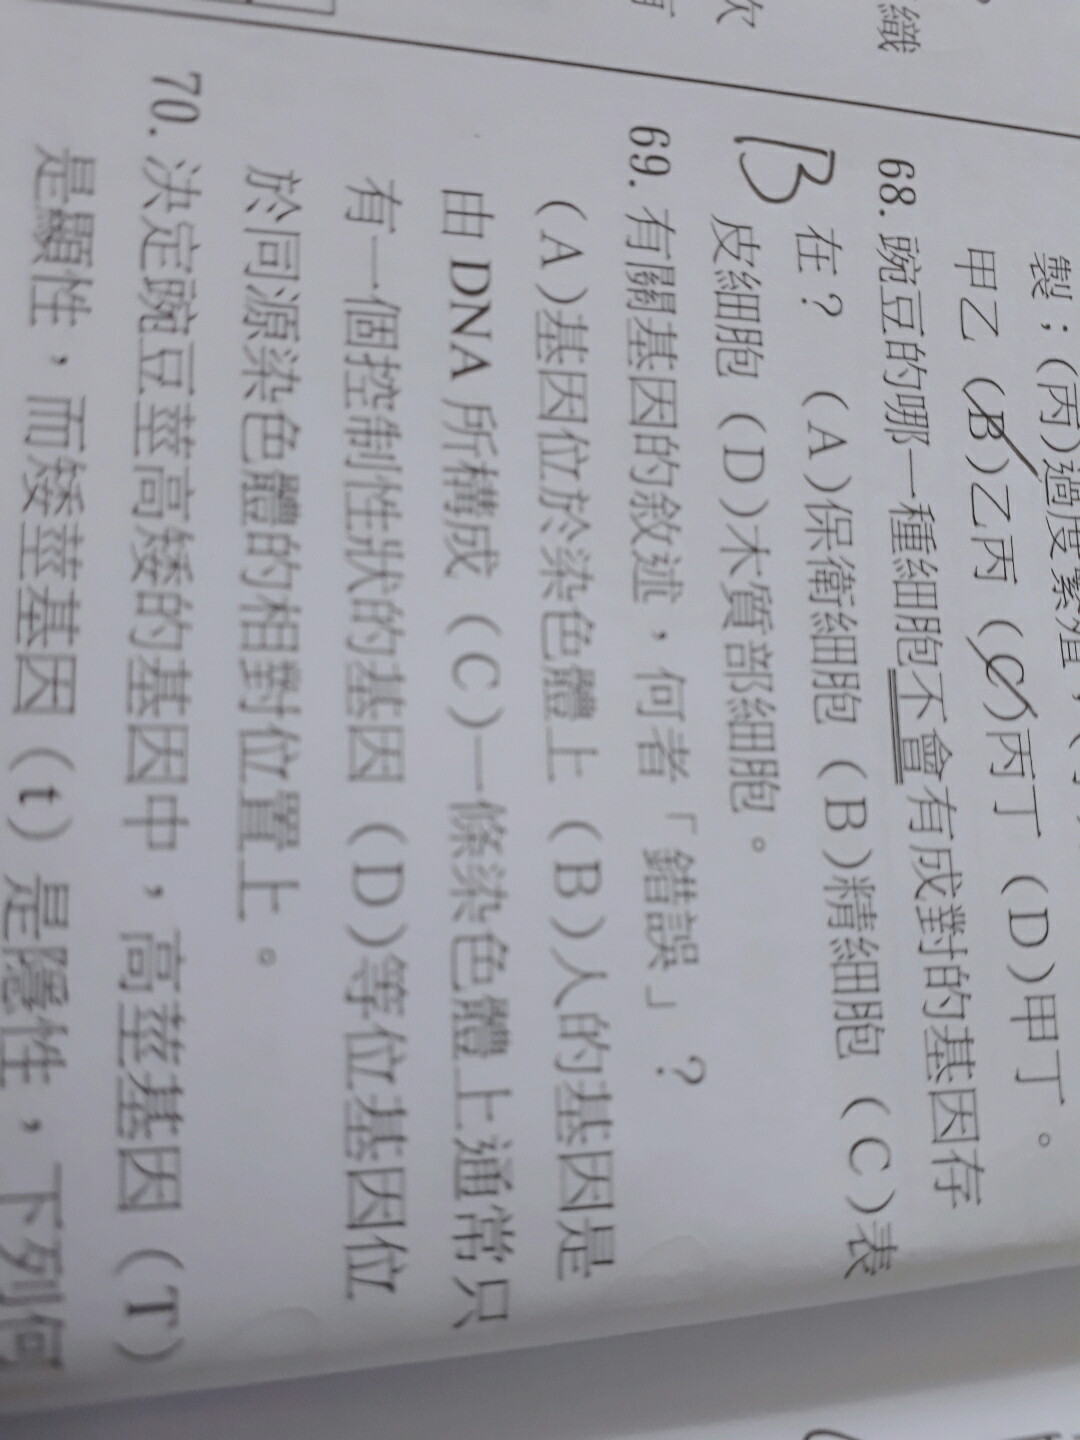 織
欠
製；(丙)過度繁殖，(
甲乙 (B)乙丙 (C)丙丁 (D)甲丁。
68. 豌豆的哪一種細胞不會有成對的基因存
B 在？ (A)保衛細胞 (B)精細胞 (C)表
皮細胞 (D)木質部細胞。
69. 有關基因的敘述，何者「錯誤」？
(A)基因位於染色體上 (B)人的基因是
由 DNA 所構成 (C)一條染色體上通常只
有一個控制性狀的基因 (D)等位基因位
於同源染色體的相對位置上。
70. 決定豌豆莖高矮的基因中，高莖基因 (T)
是顯性，而矮莖基因 (t) 是隱性，下列何